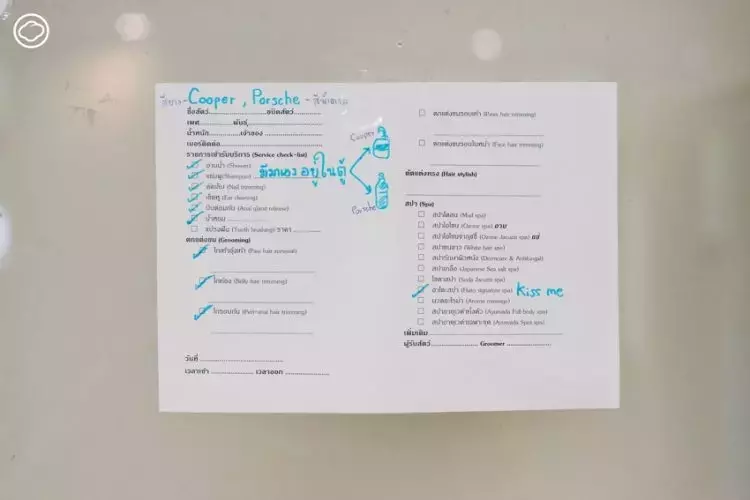 สีขาว - Cooper , Porsche - สีน้ำตาล
ชื่อสัตว์....................ชนิดสัตว์....................
เพศ....................พันธุ์....................
น้ำหนัก....................เจ้าของ....................
เบอร์ติดต่อ....................
รายการเข้ารับบริการ (Service check-list)
อาบน้ำ (Shower)
แชมพู (Shampoo) มีขวดเอง อยู่ในตู้
Cooper
Porsche
ตัดเล็บ (Nail trimming)
เช็ดหู (Ear cleaning)
บีบต่อมก้น (Anal gland release)
น้ำหอม
แปรงฟัน (Tooth brushing) ราคา
ตกแต่งขน (Grooming)
ไถเท้าอุ้งเท้า (Paw hair removal)
ไถท้อง (Belly hair trimming)
ไถรอบก้น (Peri-anal hair trimming)
วันที่ ....................
เวลาเข้า .................... เวลาออก ....................
ตกแต่งขนรอบเท้า (Paws hair trimming)
ตกแต่งขนรอบใบหน้า (Face hair trimming)
ตัดแต่งทรง (Hair stylish)
สปา (Spa)
สปาโคลน (Mud spa)
สปาโอโซน (Ozone spa) อาบ
สปาโอโซนจากุซซี่ (Ozone Jacuzzi spa) แช่
สปาขนขาว (White hair spa)
สปารักษาผิวหนัง (Dermcare & Antifungal)
สปาเกลือ (Japanese Sea salt spa)
โซดาสปา (Soda Jacuzzi spa)
(signature spa) Kiss me
นวดอโรม่า (Aroma massage)
สปาอายุรเวทั้งตัว (Ayurveda Full-body spa)
สปาอายุรเวทเฉพาะจุด (Ayurveda Spot spa)
เพิ่มเติม....................
ผู้รับสัตว์.................... Groomer ....................